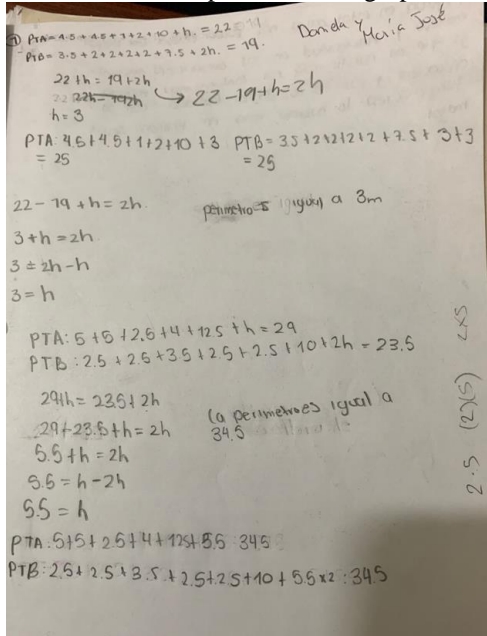 ① PTA= 4.5 + 4.5 + 1 + 2 + 10 + h. = 22
Daniela y María José
PTB= 3.5 + 2 + 2 + 2 + 2 + 7.5 + 2h. = 19.
22 + h = 19 + 2h
22 - 19 + h = 2h
h = 3
PTA: 4.5 + 4.5 + 1 + 2 + 10 + 3
= 25
PTB= 3.5 + 2 + 2 + 2 + 2 + 7.5 + 3 + 3
= 25
22 - 19 + h = 2h.
3 + h = 2h
3 = 2h - h
3 = h
perímetro es igual a 3m
PTA: 5 + 5 + 2.5 + 4 + 12.5 + h = 29
PTB: 2.5 + 2.5 + 3.5 + 2.5 + 2.5 + 10 + 2h = 23.5
29 + h = 23.5 + 2h
29 - 23.5 + h = 2h
5.5 + h = 2h
5.5 = h - 2h
5.5 = h
(a perimetro es igual a
34.5
PTA: 5 + 5 + 2.5 + 4 + 12.5 + 5.5 : 34.5
PTB: 2.5 + 2.5 + 3.5 + 2.5 + 2.5 + 10 + 5.5 x 2 : 34.5
2.5 (2)(5)